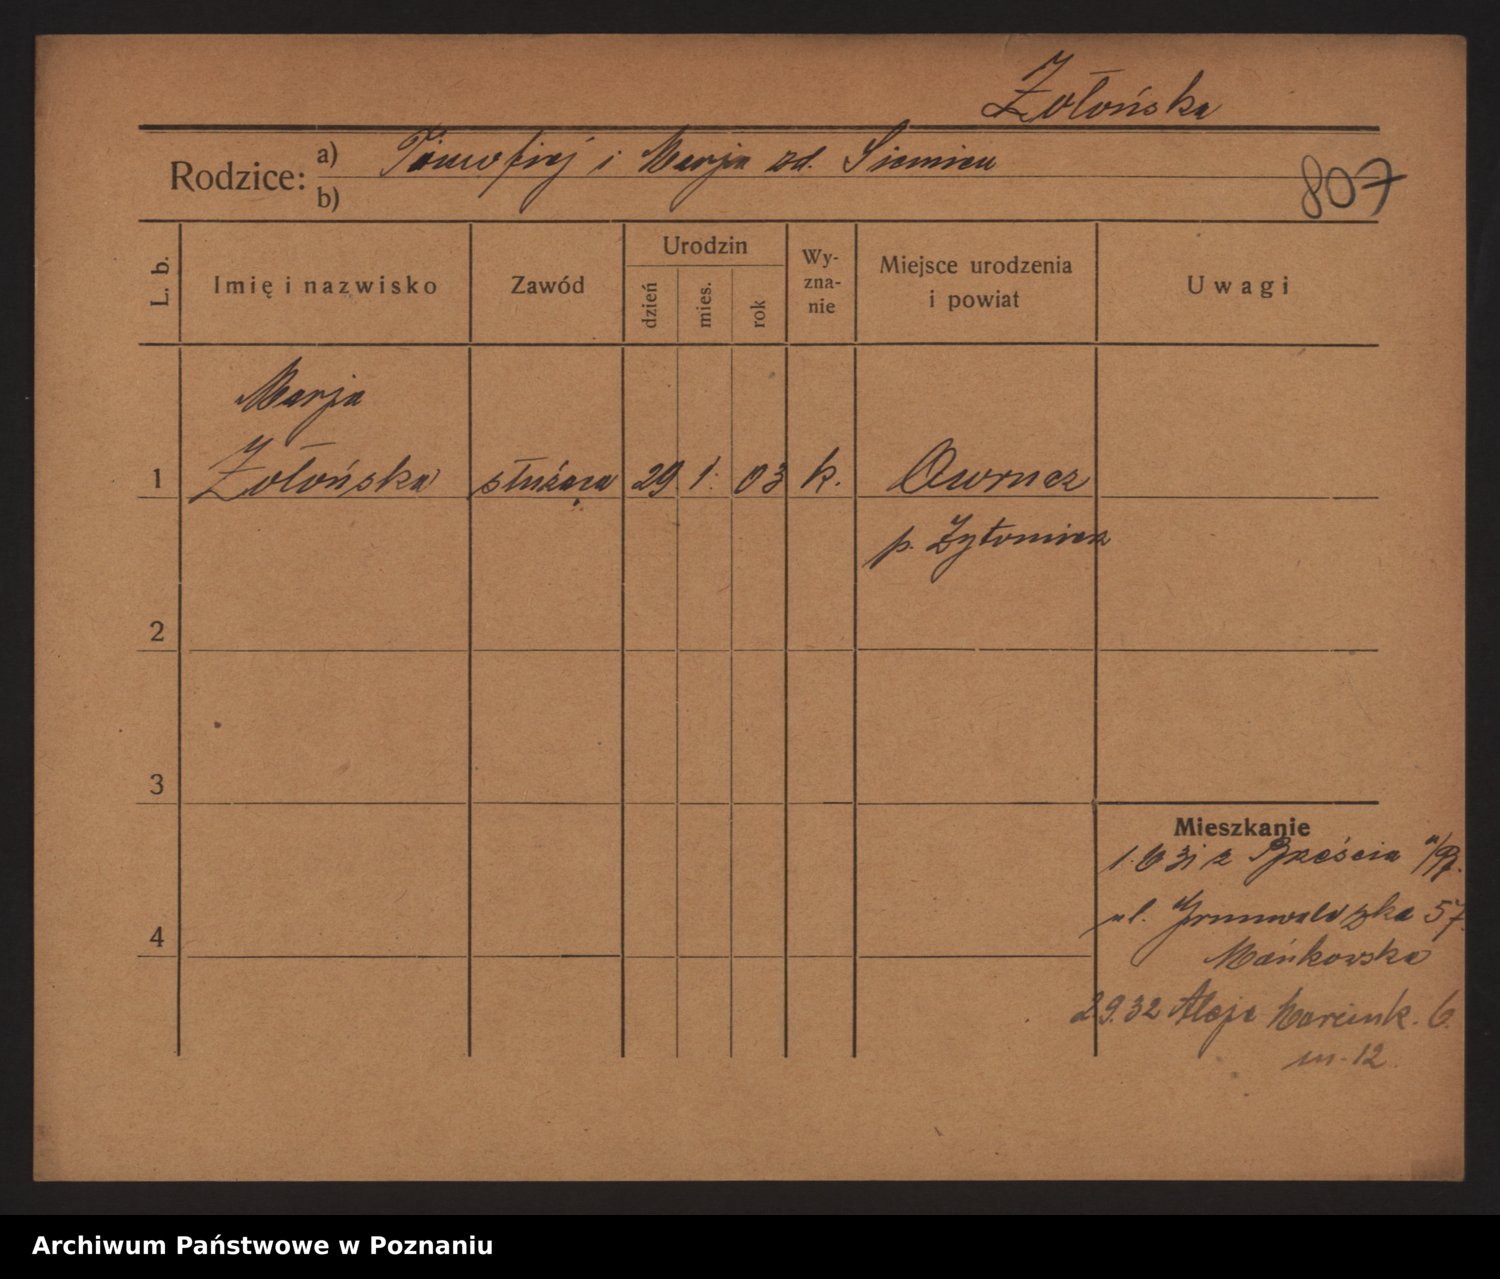 Żołońska
Rodzice:
a) Timofiej i Marja zd. Siemieu
b)
807
L. b.
Imię i nazwisko
Zawód
Urodzin
dzień
mies.
rok
Wy-
zna-
nie
Miejsce urodzenia
i powiat
Uwagi
Marja
1 Żołońska służąca 29 1. 03 k. Owrucz
p. Żytomierz
2
3
Mieszkanie
1.6 31 z Brześcia n/B.
ul. Grunwaldzka 57.
4
Mańkowska
2.9.32 Aleje Marcink. 6.
m. 12.
Archiwum Państwowe w Poznaniu